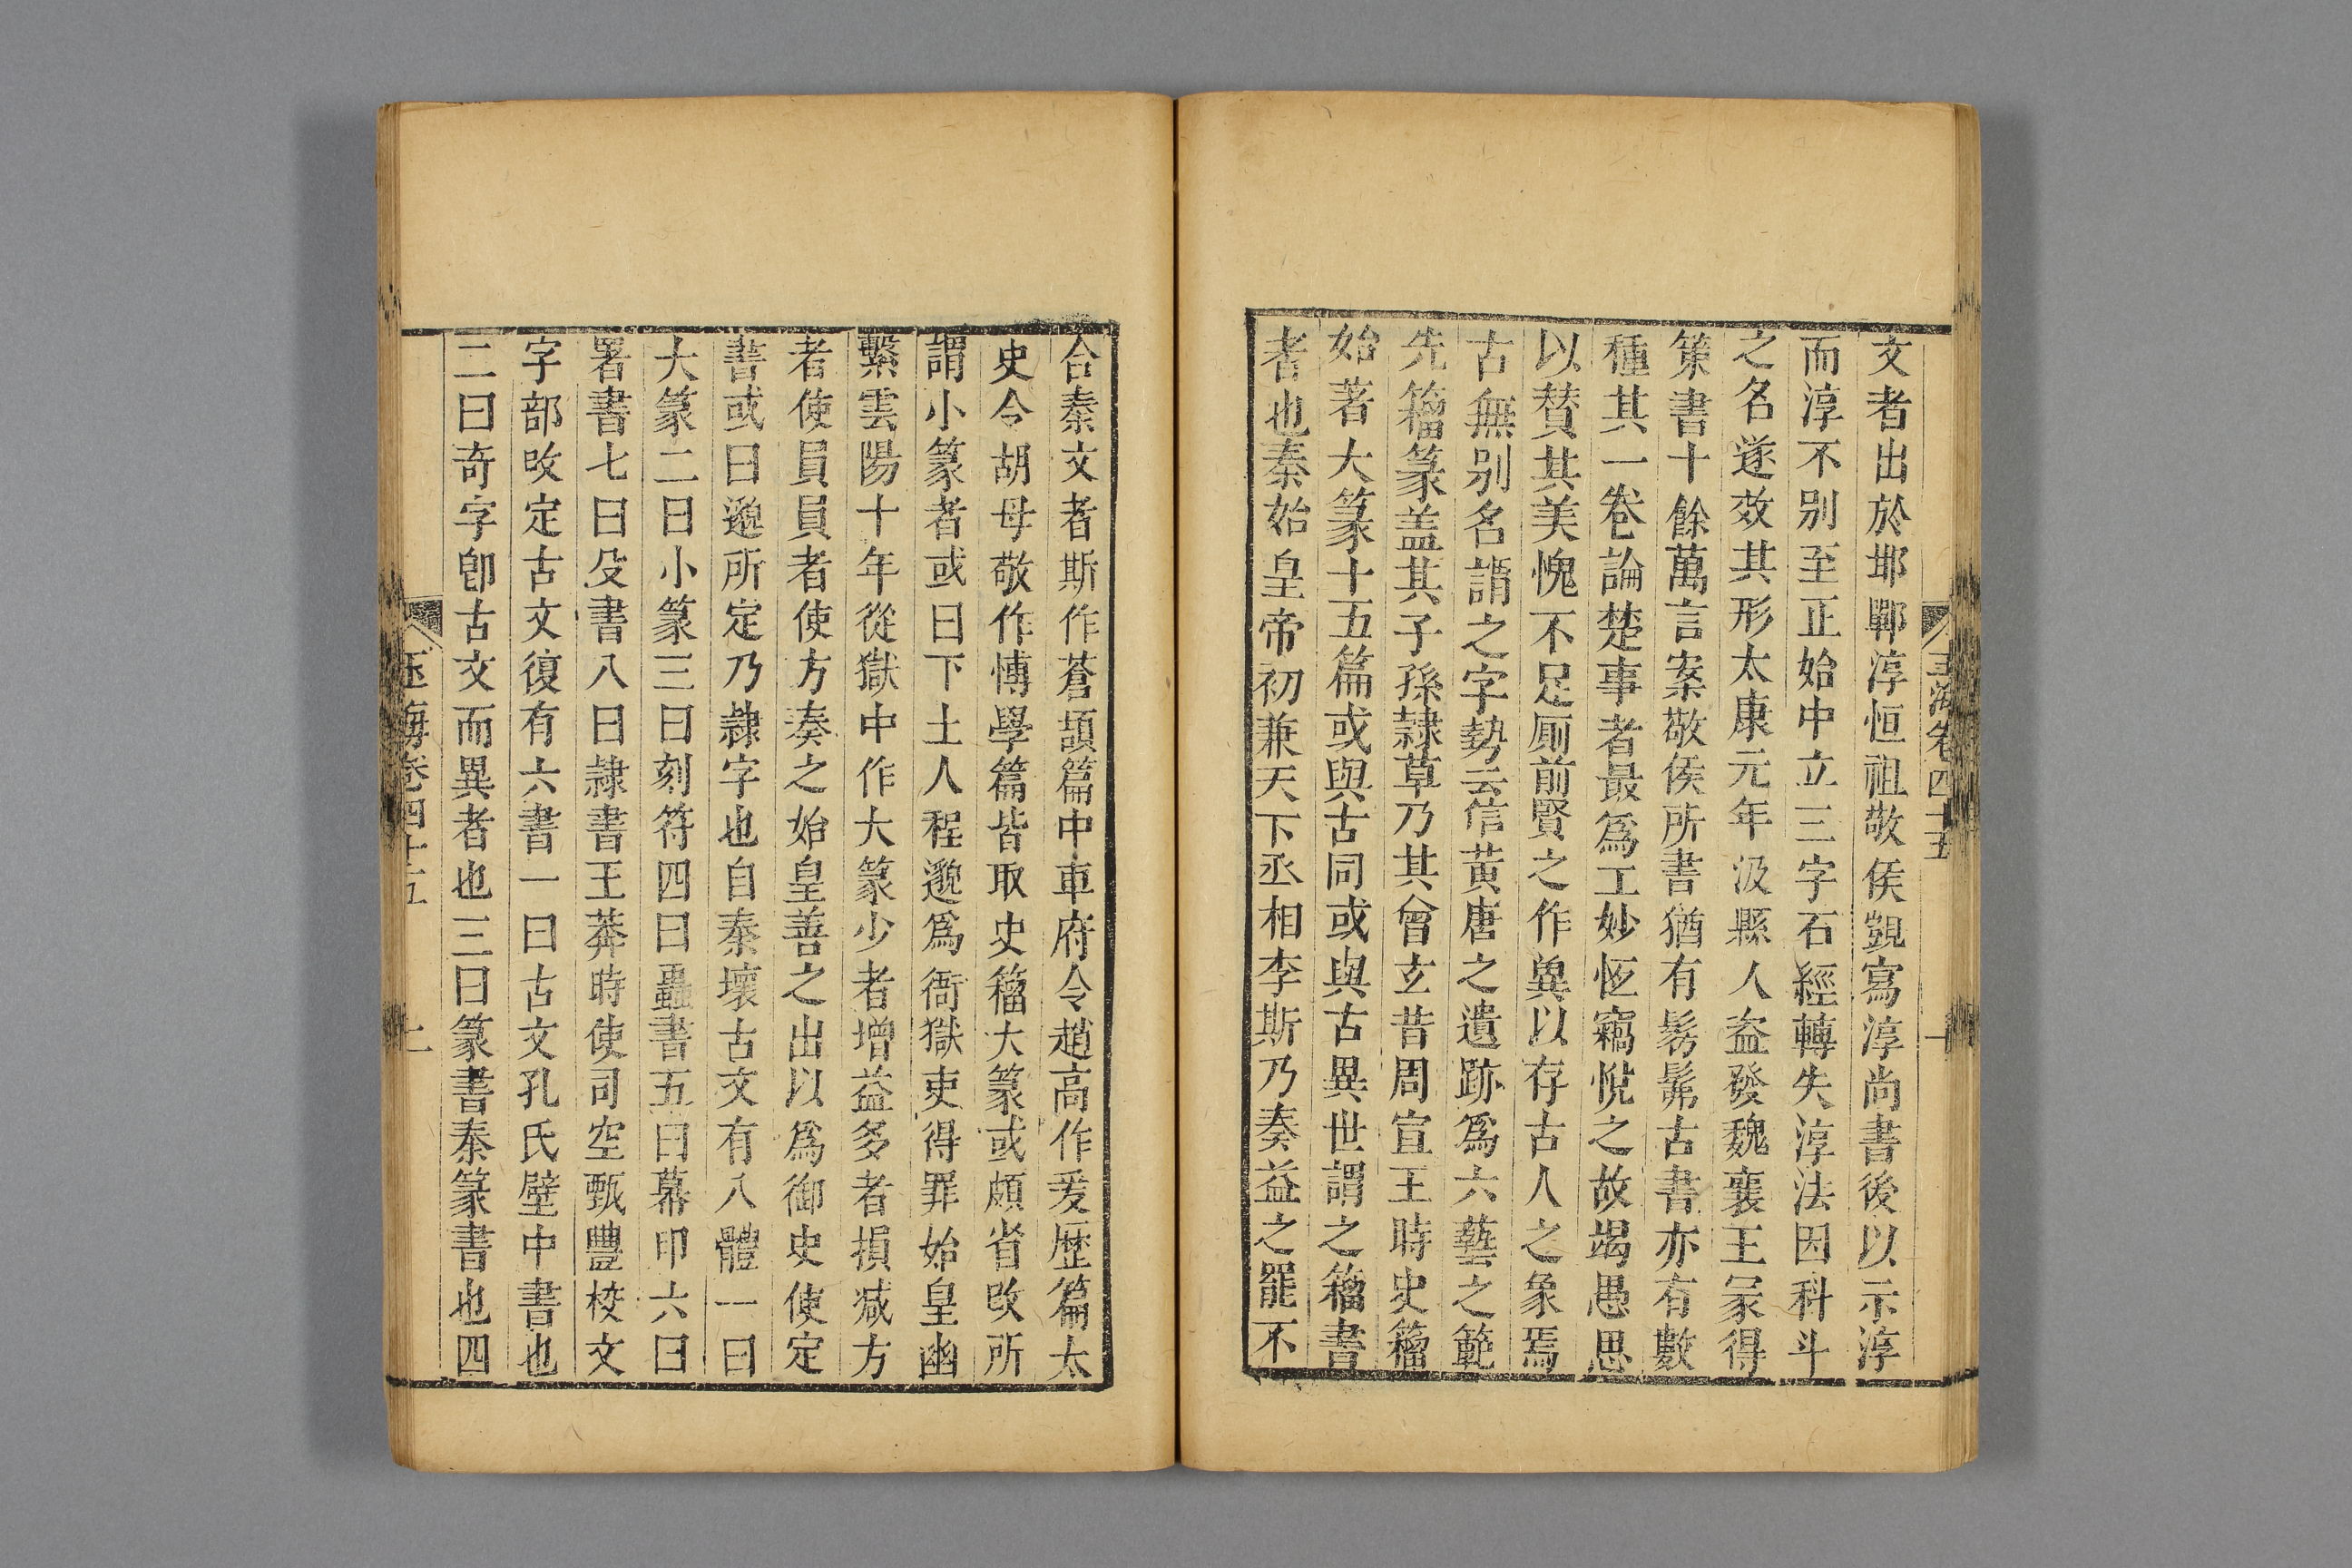 文者出於邯鄲淳恒祖敬侯覬寫淳尚書後以示淳
而淳不别至正始中立三字石經轉失淳法因科斗
之名遂效其形太康元年汲縣人盗發魏襄王冡得
策書十餘萬言案敬侯所書猶有髣髴古書亦有數
種其一卷論楚事者最爲工妙恆竊悅之故竭愚思
以賛其美愧不足厠前賢之作兾以存古人之象焉
古無别名謂之字勢云信黄唐之遺跡爲六藝之範
先籀篆盖其子孫隷草乃其曾玄昔周宣王時史籀
始著大篆十五篇或與古同或與古異世謂之籀書
者也秦始皇帝初兼天下丞相李斯乃奏益之罷不
玉海卷四十五
合秦文者斯作蒼頡篇中車府令趙高作爰歴篇太
史令胡母敬作愽學篇皆取史籀大篆或頗省改所
謂小篆者或曰下土人程邈爲衙獄吏得罪始皇幽
繫雲陽十年從獄中作大篆少者增益多者損减方
者使員員者使方奏之始皇善之出以爲御史使定
書或曰邈所定乃隷字也自秦壞古文有八體一曰
大篆二曰小篆三曰刻符四曰蟲書五曰幕印六曰
署書七曰殳書八曰隷書王莽時使司空甄豐校文
字部改定古文復有六書一曰古文孔氏壁中書也
二曰奇字卽古文而異者也三曰篆書秦篆書也四
玉海卷四十五